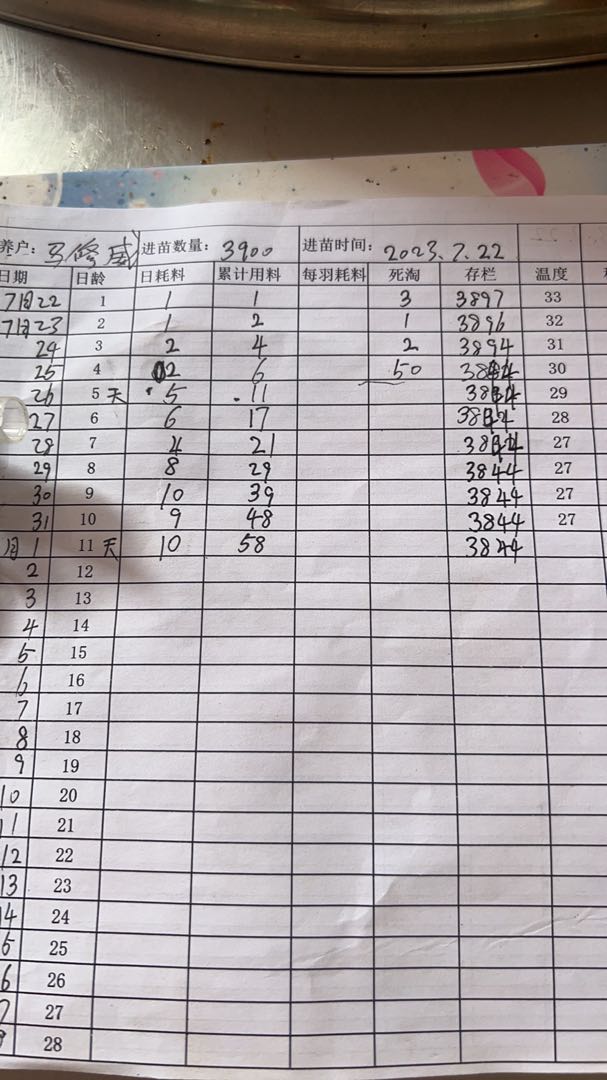 养户: 马修威 进苗数量: 3900 进苗时间: 2023.7.22
日期 日龄 日耗料 累计用料 每羽耗料 死淘 存栏 温度
7月22 1 1 1 3 3897 33
7月23 2 1 2 1 3896 32
24 3 2 4 2 3894 31
25 4 2 6 50 3844 30
26 5天 5 11 3844 29
27 6 6 17 3844 28
28 7 4 21 3844 27
29 8 8 29 3844 27
30 9 10 39 3844 27
31 10 9 48 3844 27
月1 11天 10 58 3844
2 12
3 13
4 14
5 15
6 16
7 17
8 18
9 19
10 20
11 21
12 22
13 23
14 24
5 25
6 26
7 27
28